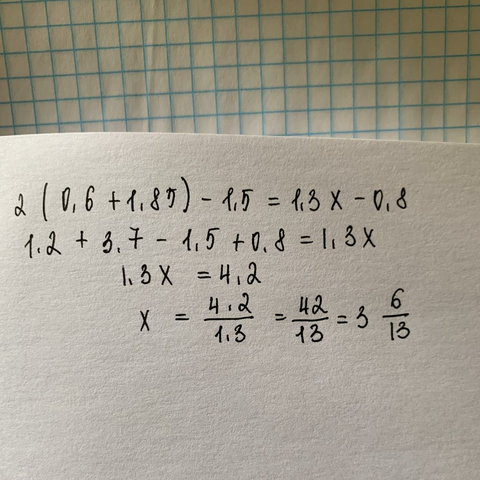 2 (0,6 + 1,85) - 1,5 = 1,3 x - 0,8
1.2 + 3.7 - 1,5 + 0.8 = 1,3x
1.3x = 4,2
x = 4.2/1.3 = 42/13 = 3 6/13